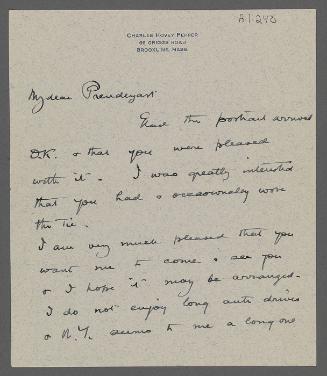 A1.240
CHARLES HOVEY PEPPER
66 GRIGGS ROAD
BROOKLINE, MASS.
My dear Prendergast
Glad the portrait arrived
O.K. & that you were pleased
with it. I was greatly interested
that you had & occasionally wore
this tie.
I am very much pleased that you
want me to come & see you
& I hope it may be arranged.
I do not enjoy long auto drives
& N.Y. seems to me a long one